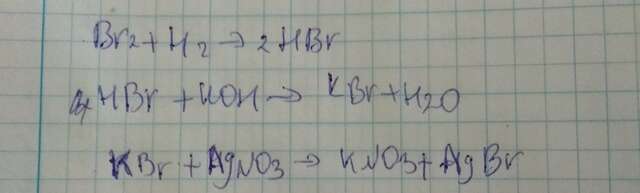 Br2 + H2 → 2HBr
HBr + KOH → KBr + H2O
KBr + AgNO3 → KNO3 + AgBr